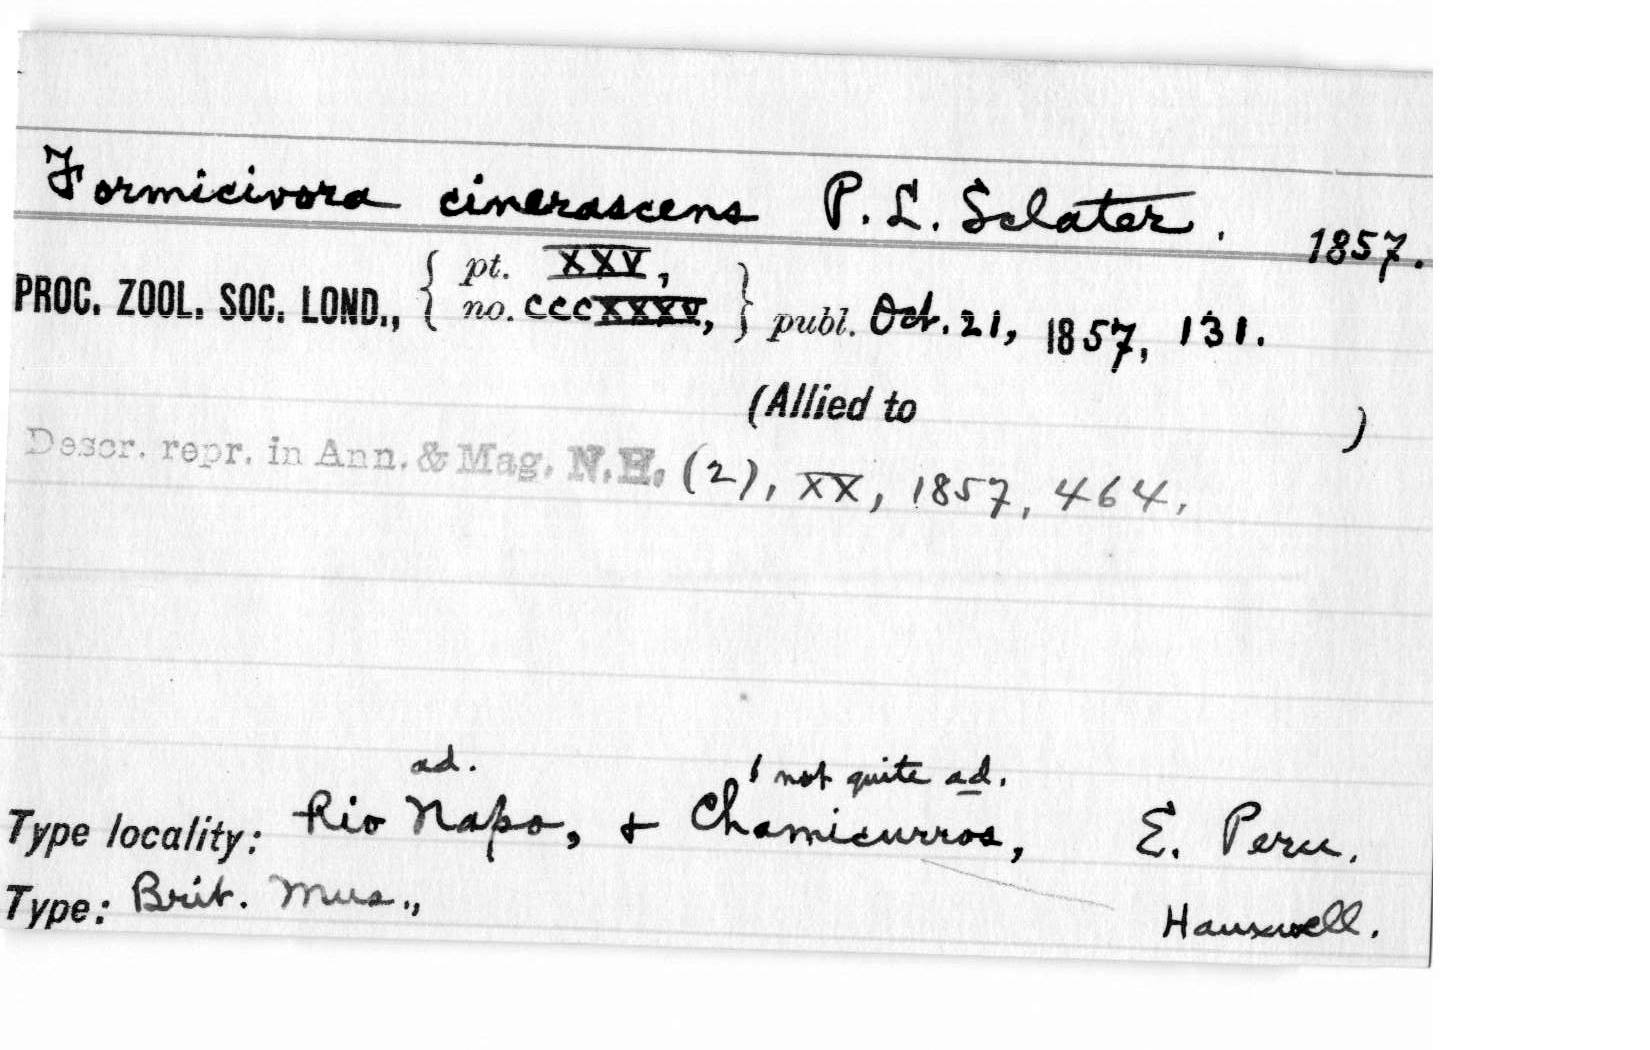 Formicivora cinerascens P. L. Sclater. 1857.
PROC. ZOOL. SOC. LOND., { pt. XXV, no. CCCXXXV, } publ. Oct. 21, 1857, 131.
(Allied to )
Descr. repr. in Ann. & Mag. N.H. (2), XX, 1857, 464.
ad. not quite ad.
Type locality: Rio Napo, + Chamicurros, E. Peru.
Type: Brit. Mus., Hauxwell.